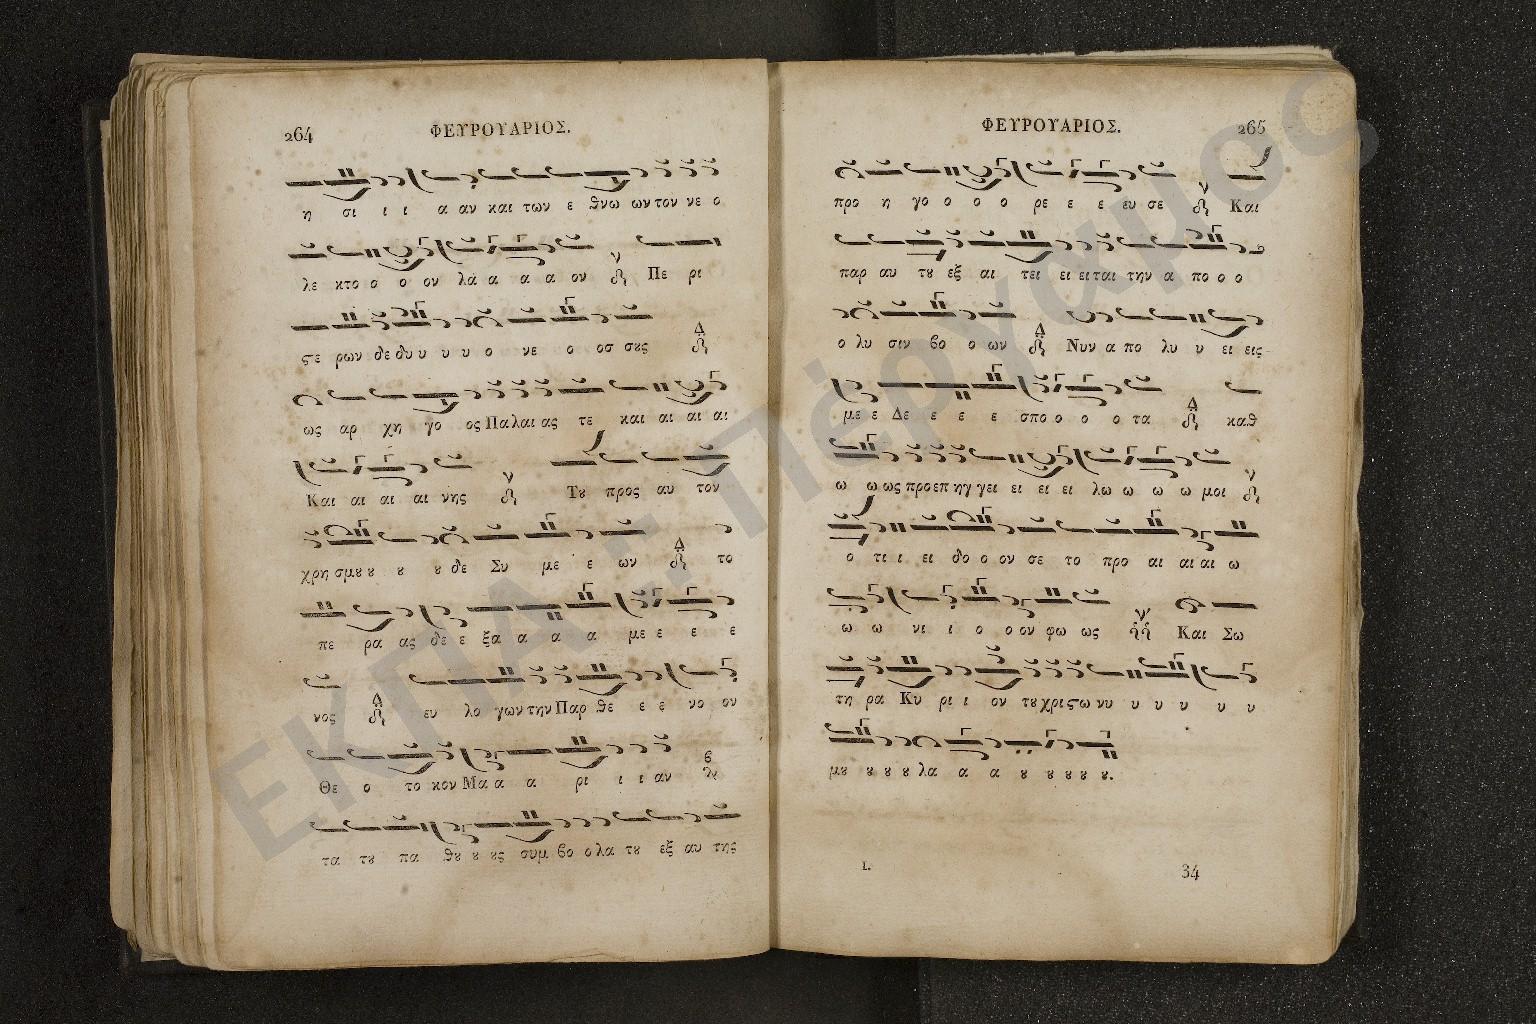 264 ΦΕΥΡΟΥΑΡΙΟΣ.
η σι ι ι α αν και των ε θνω ων τον νε ο
λε κτο ο ο ον λα α α α ον Πε ρι
ϛε ρων δε δυ υ υ υ ο νε ο οσ σȣς
ως αρ χη γο ος Παλαι ας τε και αι αι αι
Και αι αι αι νης Τȣ προς αυ τον
χρη σμȣ ȣ ȣ ȣ δε Συ με ε ων το
πε ρα ας δε ε ξα α α α με ε ε ε
νος ευ λο γων την Παρ θε ε ε νο ον
Θε ο το κον Μα α α ρι ι ι αν
τα τȣ πα θȣ ȣ ȣς συμ βο ο λα τȣ εξ αυ της
ΦΕΥΡΟΥΑΡΙΟΣ. 265
προ η γο ο ο ο ρε ε ε ευ σε Και
παρ αυ τȣ εξ αι τει ει ει ται την α πο ο ο
ο λυ σιν βο ο ων Νυν α πο λυ υ ει εις
με ε Δε ε ε ε σπο ο ο ο τα καθ
ω ω ως προεπ ηγ γει ει ει ει λω ω ω ω μοι
ο τι ι ει δο ο ον σε το προ αι αι αι ω
ω ω νι ι ο ο ον φω ως Και Σω
τη ρα Κυ ρι ι ον τȣ χριϛω νυ υ υ υ υ υ
μȣ ȣ ȣ ȣ λα α α ȣ ȣ ȣ ȣ ȣ.
Ι. 34
ΕΚΠΑ: Πέργαμος